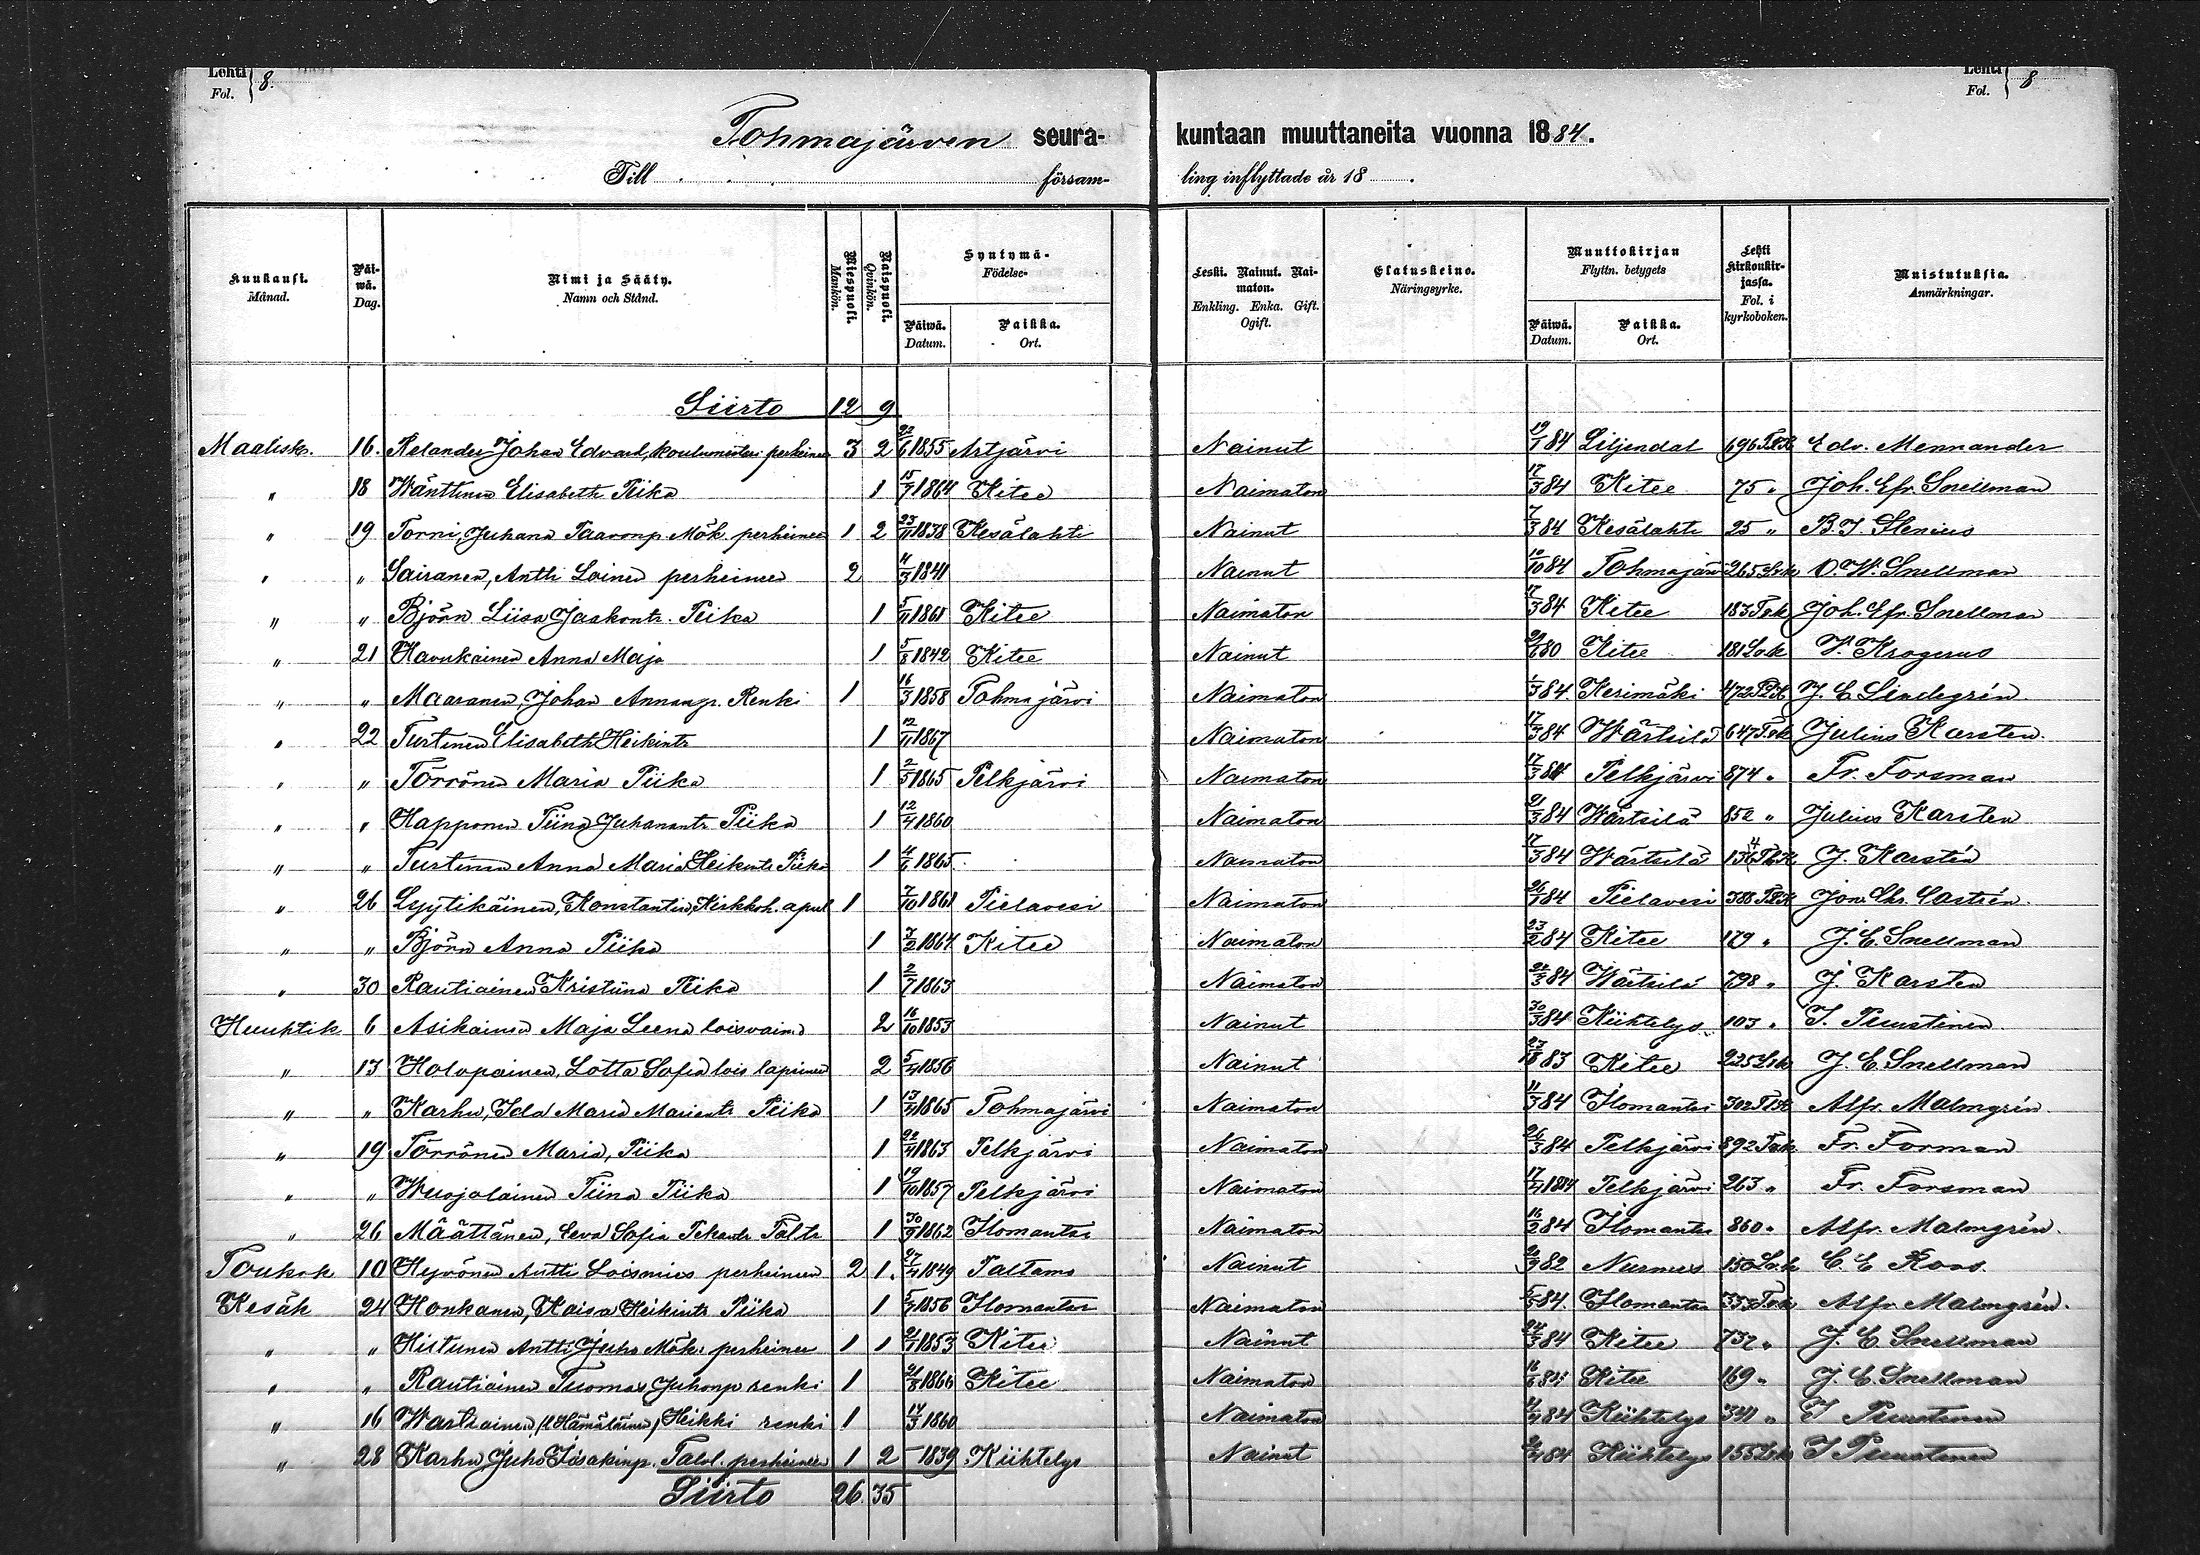 Lehti Fol. 8.
Lehti Fol. 8
Tohmajärven seurakuntaan muuttaneita vuonna 1884.
Till församling inflyttade år 18 .
Kuukausi. Månad. Päiwä. Dag. Nimi ja Sääty. Namn och Stånd. Miespuoli. Mankön. Naispuoli. Qvinkön. Syntymä- Födelse- Päiwä. Datum. Paikka. Ort. Leski. Nainut. Naimaton. Enkling. Enka. Gift. Ogift. Elatuskeino. Näringsyrke. Muuttokirjan Flyttn. betygets Päiwä. Datum. Paikka. Ort. Lehti kirkonkirjassa. Fol. i kyrkoboken. Muistutuksia. Anmärkningar.
Siirto 12 9
Maalisk. 16. Relander Johan Edvard, koulumesteri perheineen 3 2 22/6 1855 Artjärvi Nainut 19/1 84 Liljendal 696 Edv. Mennander
" 18 Wänttinen Elisabeth Piika 1 15/7 1864 Kitee Naimaton 17/3 84 Kitee 75 " Joh. Efr. Snellman
" 19 Torni, Juhana Paavonp. Mök. perheineen 1 2 23/11 1838 Kesälahti Nainut 7/3 84 Kesälahti 25 " B. J. Stenius
" " Sairanen, Antti Loinen perheineen 2 4/3 1841 Nainut 10/10 84 Tohmajärvi 265 Lvk O. W. Snellman
" " Björn Liisa Jaakontr. Piika 1 5/11 1861 Kitee Naimaton 17/3 84 Kitee 183 Pvk Joh. Efr. Snellman
" 21 Havukainen Anna Maja 1 5/8 1842 Kitee Nainut 80 Kitee 181 Lvk K. Krogerus
" " Maaranen, Johan Annanp. Renki 1 16/3 1858 Tohmajärvi Naimaton 1/3 84. Kerimäki 472 J. E. Lindegrén
" 22 Turtinen Elisabeth Heikintr 1 12/11 1867 Naimaton 17/3 84 Wärtsilä 647 Pvk Julius Karsten.
" " Törrönen Maria Piika 1 2/5 1865 Pelkjärvi Naimaton 17/3 84 Pelkjärvi 874 " Fr. Forsman
" " Happonen Tiina Juhanantr Piika 1 12/4 1860 Naimaton 21/3 84 Wärtsilä 852 " Julius Karsten
" " Turtinen Anna Maria Heikintr Piika 1 4/6 1865. Naimaton 17/3 84 Wärtsilä J. Karstén
" 26 Lyytikäinen, Konstantin, Kirkkoh. apul 1 7/10 1861 Pielavesi Naimaton 26/1 84 Pielavesi 388 Jon. Chr. Castrén.
" " Björn Anna Piika 1 3/2 1864 Kitee Naimaton 23/2 84 Kitee 179 " J. E. Snellman
" 30 Rautiainen Kristiina Piika 1 2/7 1863 Naimaton 22/3 84 Wärtsilä 798 " J. Karsten
Huuhtik 6 Asikainen Maja Leena loisvaimo 2 16/10 1853 Nainut 30/3 84 Kiihtelys 103 " I. Puustinen.
" 13 Holopainen, Lotta Sofia lois lapsineen 2 5/4 1856 Nainut 83 Kitee 225 Lvk J. E. Snellman
" " Karhu, Ida Maria Mariantr Piika 1 13/4 1865 Tohmajärvi Naimaton 11/3 84 Ilomantsi 302 Alfr. Malmgrén.
" 19 Törrönen Maria, Piika 1 22/4 1863 Pelkjärvi Naimaton 26/3 84 Pelkjärvi 892 Pvk Fr. Forman
" " Wuojolainen Tiina Piika 1 19/10 1857 Pelkjärvi Naimaton 17/4 1884 Pelkjärvi 263 " Fr. Forsman
" 26 Määttänen, Eeva Sofia Pekantr Taltr 1 30/9 1862 Ilomantsi Naimaton 16/2 84 Ilomantsi 860 " Alfr. Malmgrén.
Toukok 10 Hyvönen Antti Loismies perheineen 2 1. 27/4 1849 Paltamo Nainut 82 Nurmes 150 Lvk C. E. Roos.
Kesäk 24 Honkanen, Kaisa Heikintr Piika 1 5/7 1856 Ilomantsi Naimaton 84. Ilomantsi 353 Pvk Alfr. Malmgrén.
" " Hiltunen Antti Juho Mök. perheineen 1 1 21/7 1853 Kitee Nainut 24/3 84 Kitee 737 " J. E. Snellman
" " Rautiainen Tuomas Juhonp renki 1 21/8 1866 Kitee Naimaton 16/6 84 Kitee 169 " J. E. Snellman
" 16 Wartiainen, (l. Hämäläinen) Heikki renki 1 14/3 1860 Naimaton 84 Kiihtelys 341 " I Puustinen
" 28 Karhu Juho Iisakinp. Talol. perheineen 1 2 – 1839 Kiihtelys Nainut 84 Kiihtelys 155 Lvk I Puustinen
Siirto 26 35